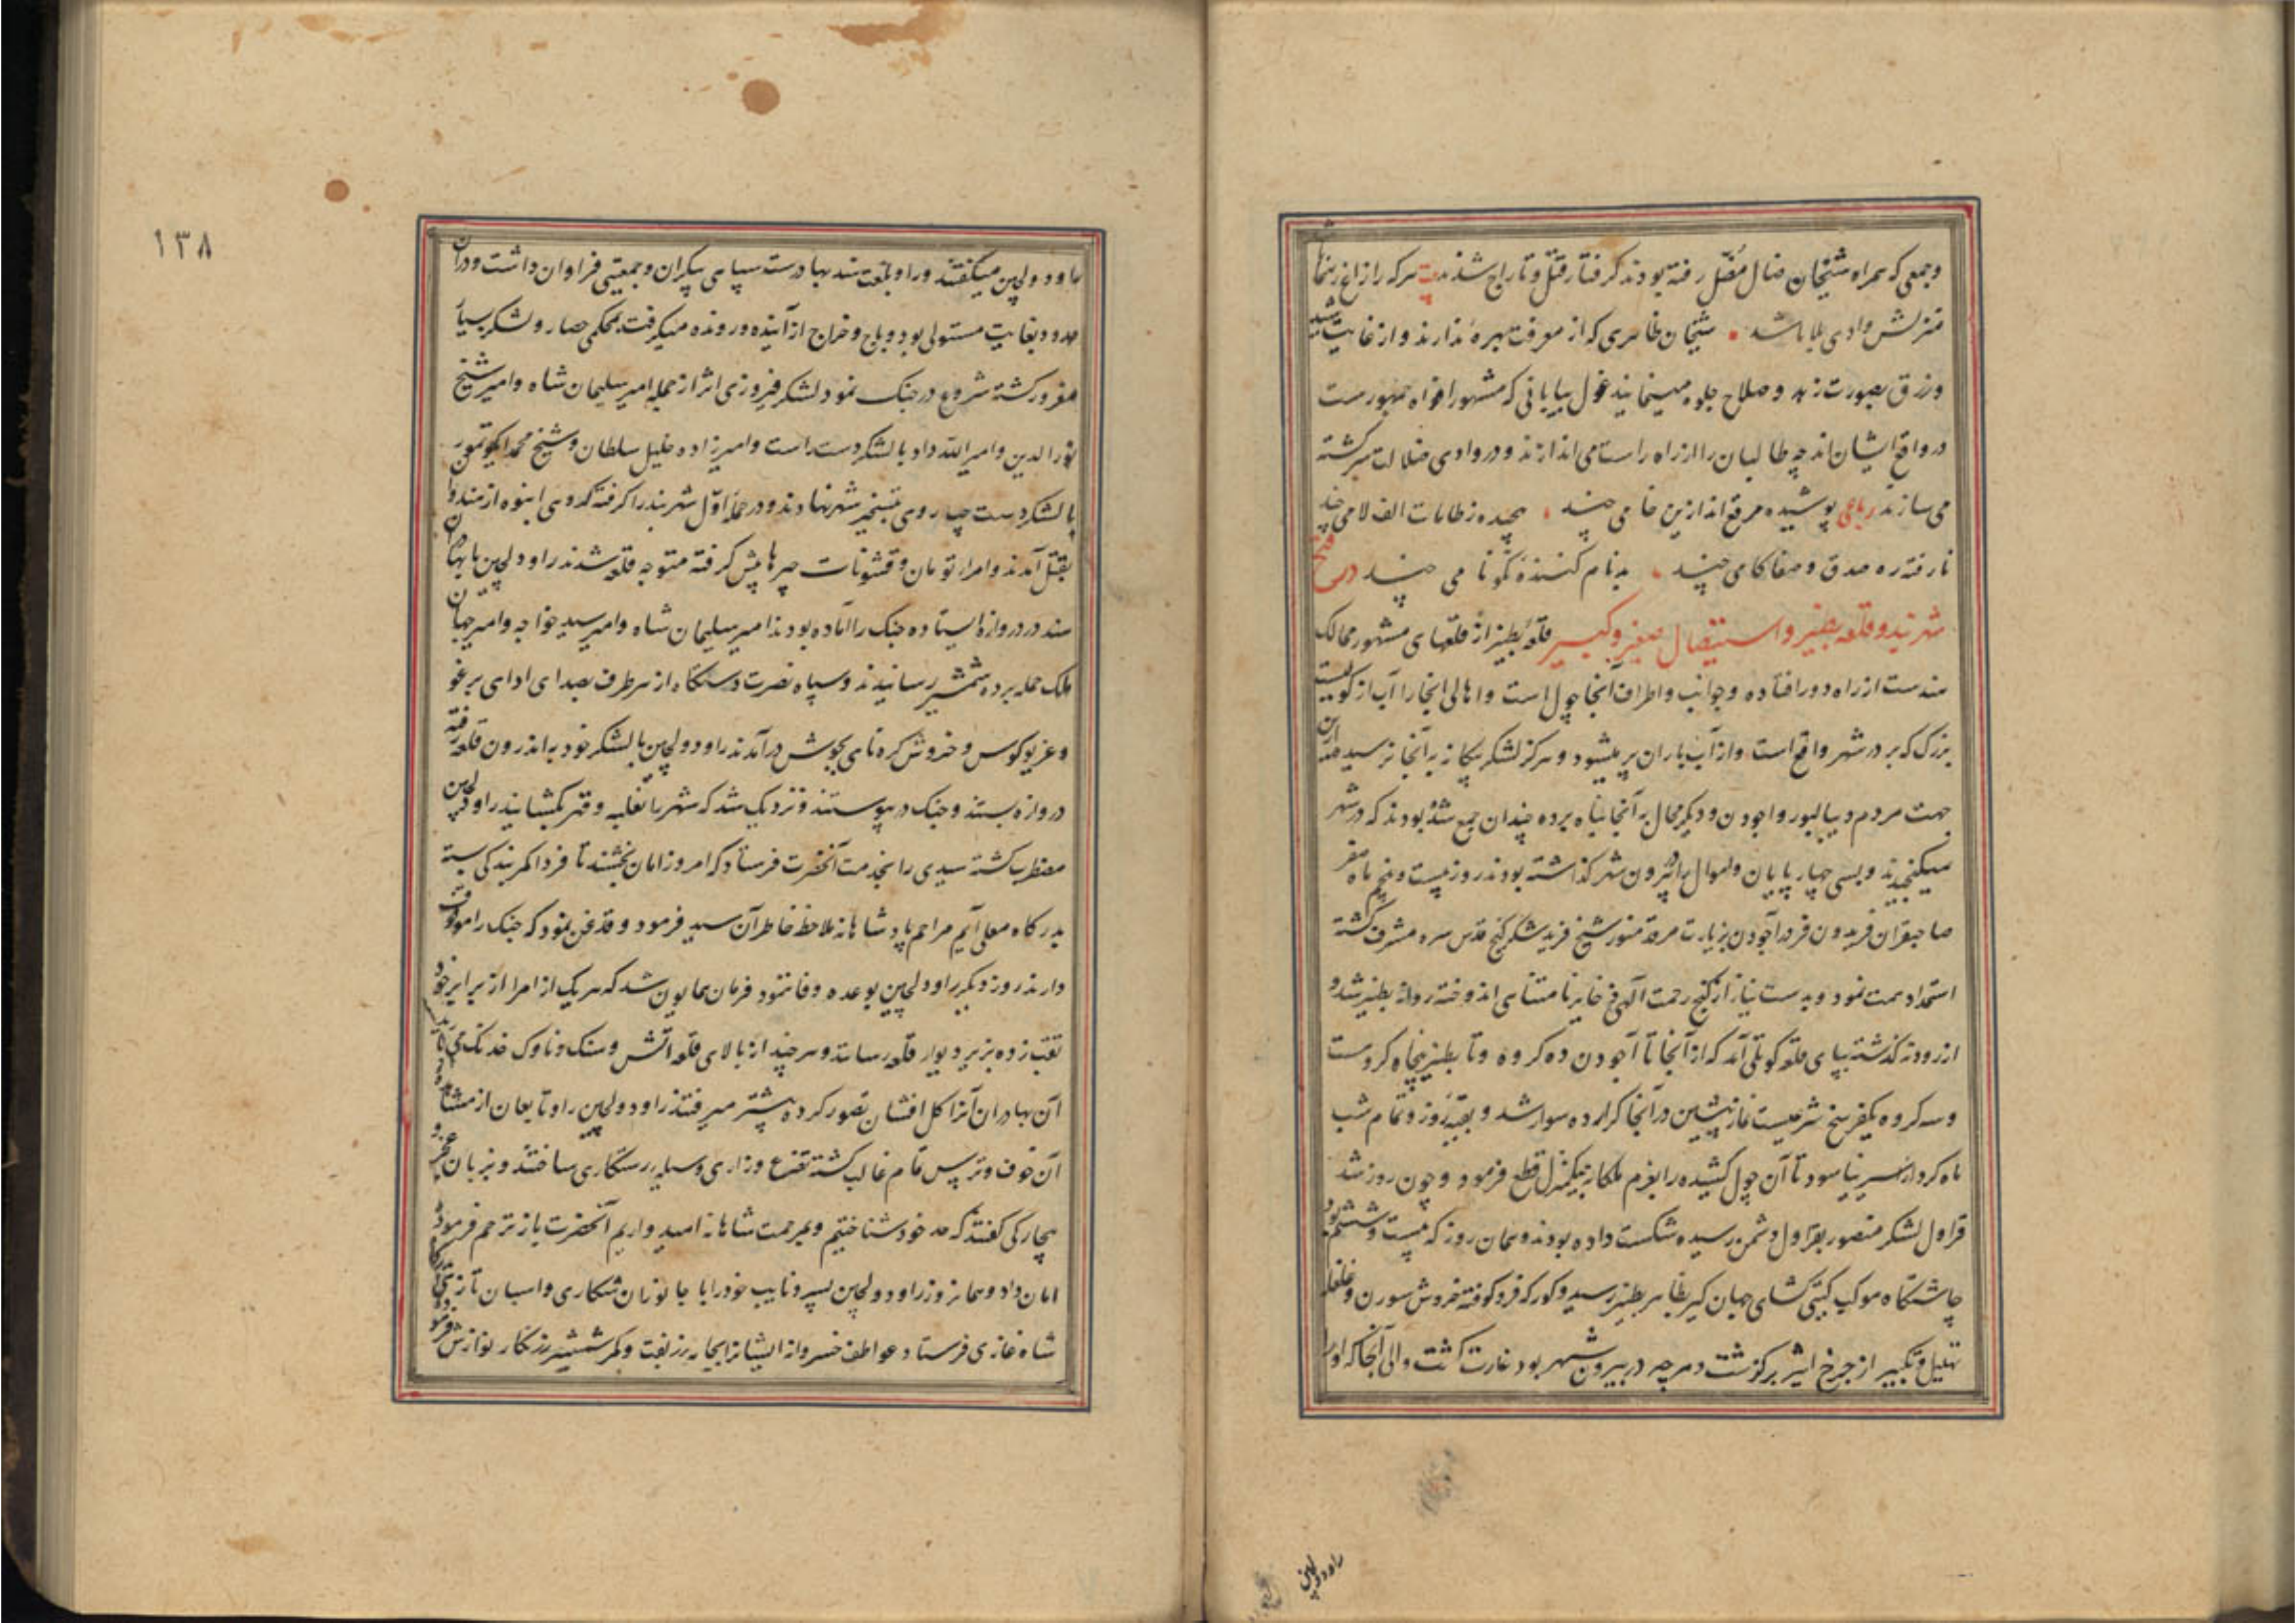 وجمعی که همراه شیخان ضال مضل رفته بودند گرفتار قتل و تاراج شدند بیت هرکه را زاغ رهنما
منزلش وادی بلا باشد شیخان ظاهری که از معرفت بهره ندارند و از غایت
و زرق بصورت زهد و صلاح جلوه مینمایند غول بیابانی که مشهور افواه جمهورست
در واقع ایشان اند چه طالبان را از راه راست می اندازند و در وادی ضلالت سرگشته
می سازند رباعی پوشیده مرقع اند ازین خامی چند بگرفته ز طامات الف لامی چند
نارفته ره صدق و صفا گامی چند بدنام کننده نکونامی چند در فتح
شهر بند و قلعه بطنیر و استیصال صغیر و کبیر قلعه بطنیر از قلعهای مشهور ممالک
هندست از راه دور افتاده و جوانب و اطراف آنجا چول است و اهالی انجا را آب از کولیست
بزرگ که بر در شهر واقع است و از آب باران پر میشود و هرگز لشکر بیگانه به آنجا نرسیده
جهت مردم دیبالپور و اجودن و دیگر محال به آنجا پناه برده چندان جمع شده بودند که در شهر
نمیگنجیدند و بسی چهارپایان و اموال را در بیرون شهر گذاشته بودند روز بیست و پنجم ماه صفر
صاحبقران فریدون فر در آجودن بزیارت مرقد منور شیخ فرید شکر گنج قدس سره مشرف گشته
استمداد همت نمود و بدست نیاز از گنج رحمت آلهی ذخایر نامتناهی اندوخته روانه بطنیر شد و
از رود گذشته بپای قلعه کوتلی آمد که از آنجا تا آجودن ده کروه و تا بطنیر پنجاه کروست
و سه کروه یکفرسخ شرعیست نماز پیشین در آنجا گزارده سوار شد و بقیه روز و تمام شب
ماه کردار از سیر نیاسود تا آن چول کشیده را بعزم ملکانه بیکمنزل قطع فرمود و چون روز شد
قراول لشکر منصور بقراول دشمن رسیده شکست داده بودند و همان روز که بیست و ششم بود
چاشتگاه موکب گیتی گشای جهان گیر بظاهر بطنیر رسید و کورکه فرو کوفته خروش سورن و غلغله
تهلیل و تکبیر از چرخ اثیر برگذشت و هرچه در بیرون شهر بود غارت گشت و والی آنجا که او را
راو دولچین
راو دولچین میگفتند و راو بلغت هند بهادرست سپاهی بیکران و جمعیتی فراوان داشت و در آن
حدود بغایت مستولی بود و باج و خراج از آینده و رونده میگرفت بمحکمی حصار و لشکر بسیار
مغرور گشته شروع در جنگ نمود لشکر فیروزی اثر از جمله امیر سلیمان شاه و امیر شیخ
نورالدین و امیر الله داد با لشکر دست راست و امیرزاده خلیل سلطان و شیخ محمد ایکو تیمور
با لشکر دست چپ روی بتسخیر شهر نهادند و در حمله اول شهربند را گرفته گروهی انبوه از هندوان
بقتل آمدند و امراء تومان و قشونات چپرها پیش گرفته متوجه قلعه شدند راو دولچین با بهادران
هند در دروازه ایستاده جنگ را آماده بودند امیر سلیمان شاه و امیر سید خواجه و امیر جهان
ملک حمله برده شمشیر رسانیدند و سپاه نصرت دستگاه از هر طرف بصدای ادای برغو
و غریو کوس و خروش کره نای بجوش درآمدند راو دولچین با لشکر خود به اندرون قلعه رفته
دروازه بستند و جنگ در پیوستند و نزدیک شد که شهر با تغلبه و قهر بگشایند راو دولچین
مضطرب گشته سیدی را بخدمت آنحضرت فرستاد که امروز امان بخشند تا فردا کمر بندگی بسته
بدرگاه معلی آیم مراحم پادشاهانه ملاحظه خاطر آن سید فرمود و قدغن نمود که جنگ را موقوف
دارند روز دیگر راو دولچین بوعده وفا ننمود فرمان همایون شد که هر یک از امرا از برابر خود
نقب زده بزیر دیوار قلعه رسانند و هر چند از بالای قلعه آتش و سنگ و ناوک خدنگ می
آن بهادران آنرا گل افشان تصور کرده پیشتر میرفتند راو دولچین را و تابعان از مشاهده
آن خوف و ترس تمام غالب گشته تضرع و زاری وسیله رستگاری ساختند و بزبان عجز و
بیچارگی گفتند که حد خود شناختیم و بمرحمت شاهانه امید واریم آنحضرت باز ترحم فرموده
امان داد و همانروز راو دولچین پسر و نایب خود را با جانوران شکاری و اسبان تازی
شاه غازی فرستاد عواطف خسروانه ایشانرا بجامه زربفت و کمر شمشیر زرنگار نوازش فرموده
۱۳۸